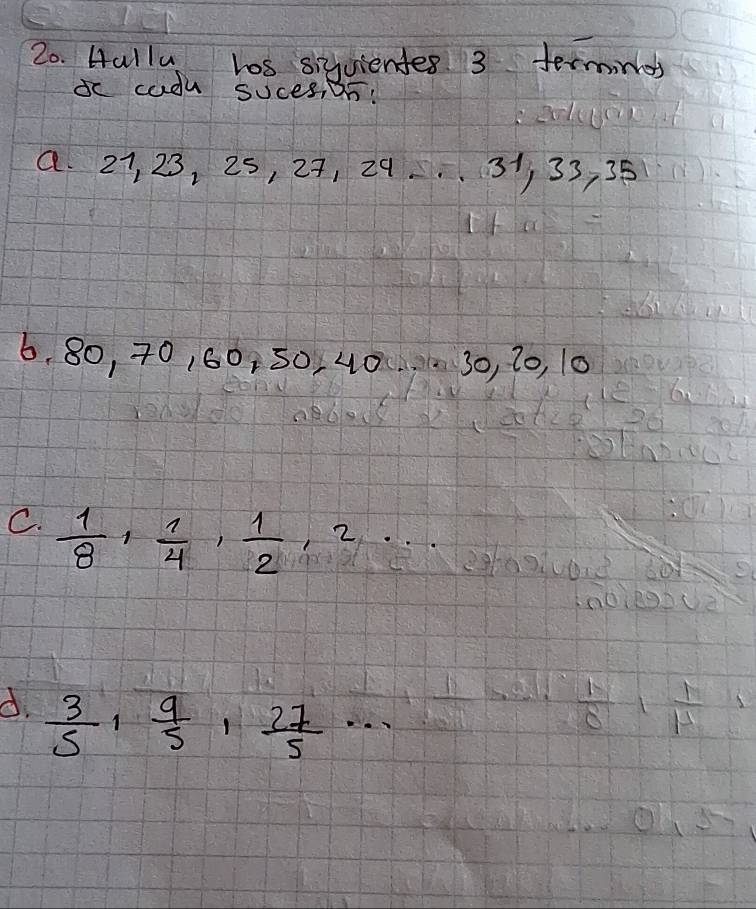 20. Hallu los siguientes 3 terminos
de cada sucesión:
a. 21, 23, 25, 27, 29 ... 31, 33, 35
b. 80, 70, 60, 50, 40 ... 30, 20, 10
c. 1/8, 1/4, 1/2, 2 ...
d. 3/5, 9/5, 27/5 ...